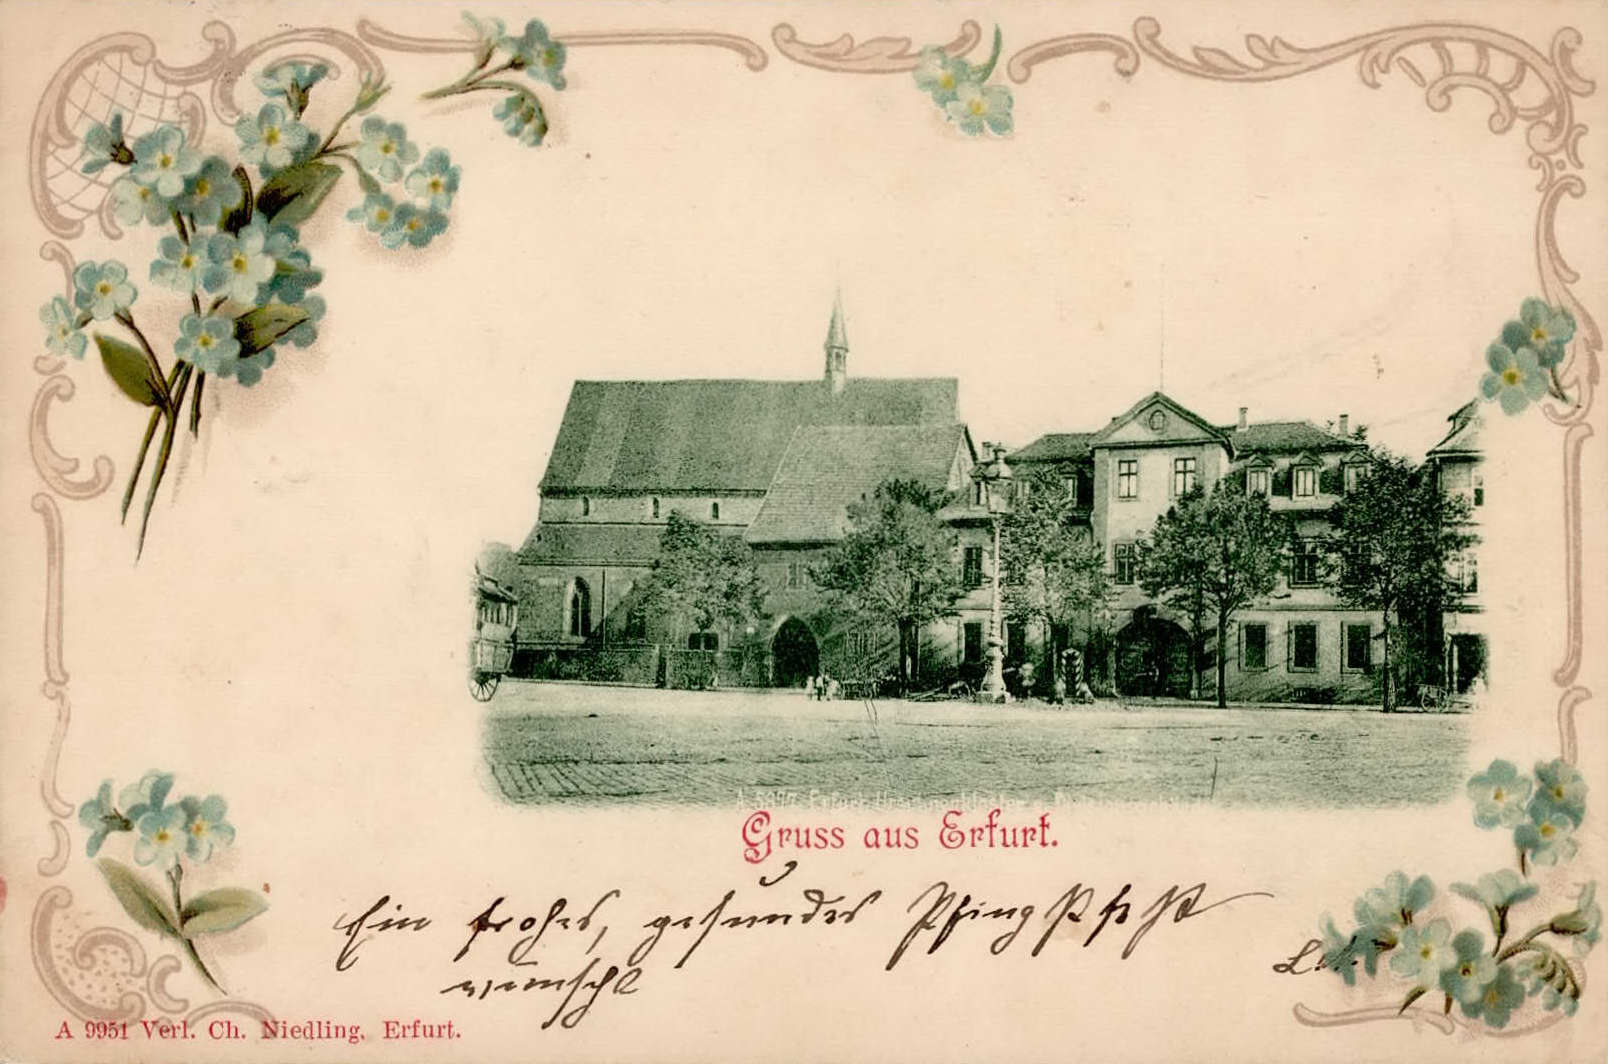 Erfurt Ursulinerkloster
Gruss aus Erfurt.
Ein frohes, gesundes Pfingstfest
wünscht
A 9951 Verl. Ch. Niedling, Erfurt.